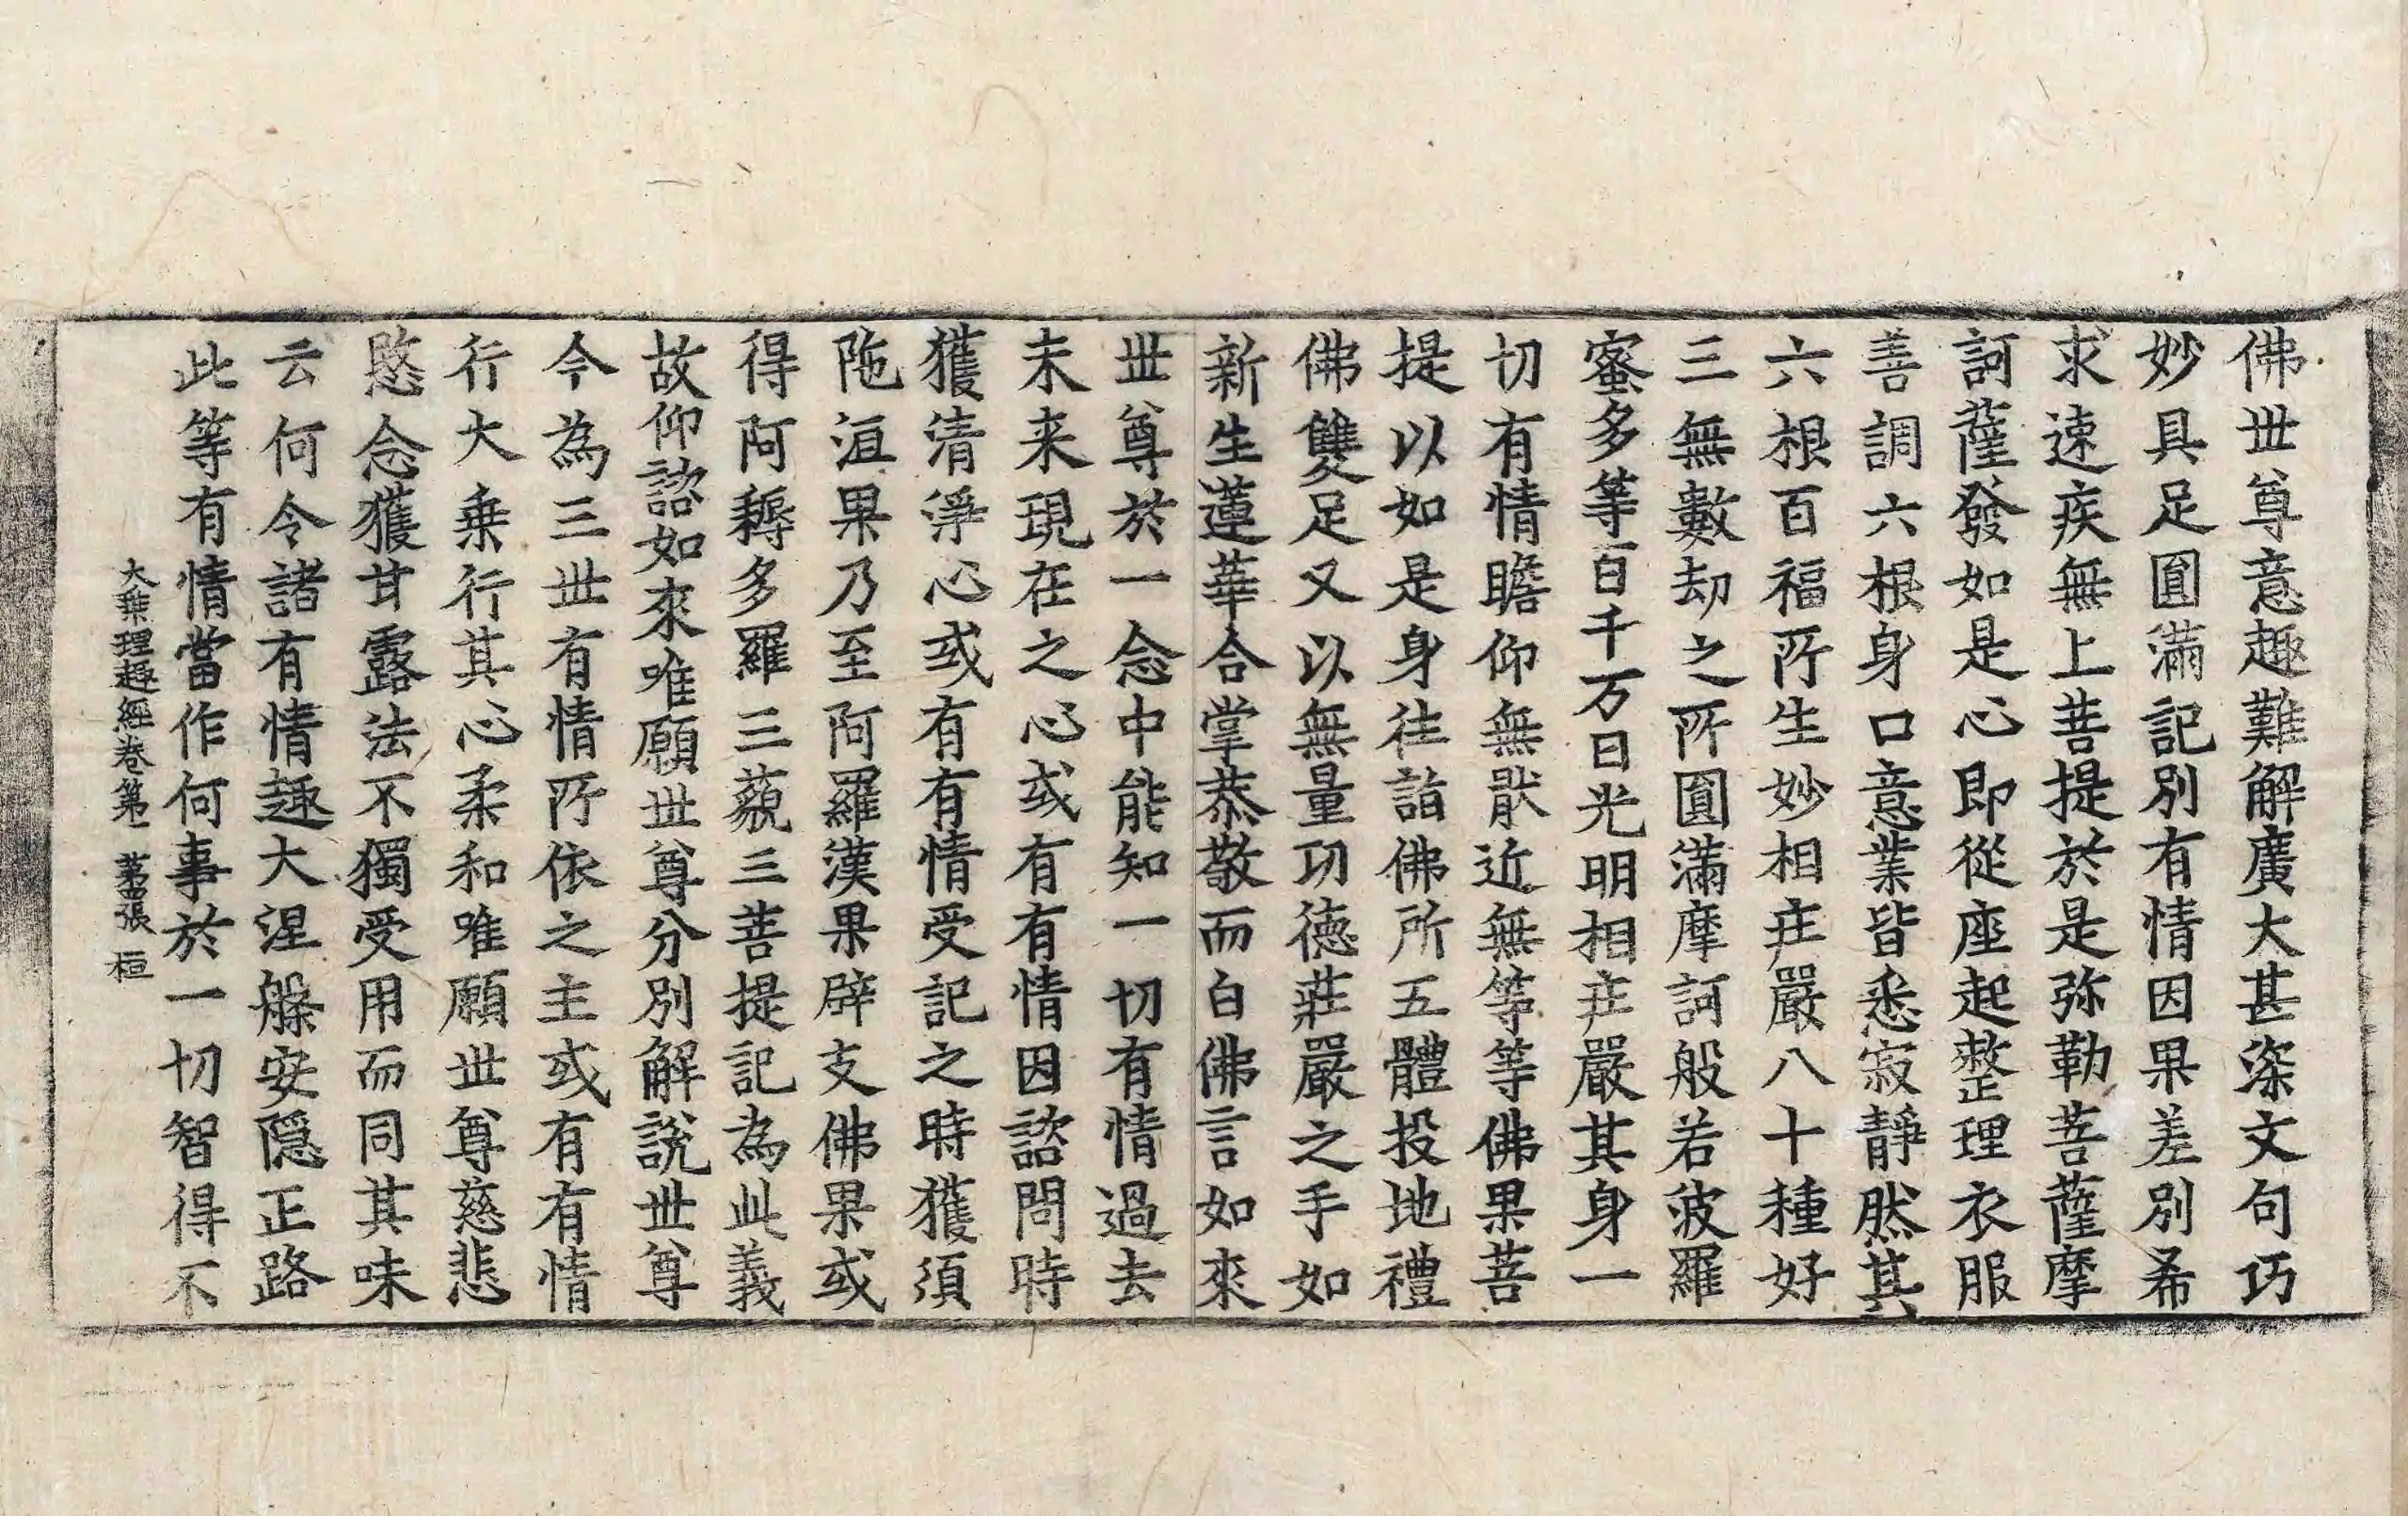 佛世尊意趣難解廣大甚深文句巧
妙具足圓滿記別有情因果差別希
求速疾無上菩提於是弥勒菩薩摩
訶薩發如是心即從座起整理衣服
善調六根身口意業皆悉寂靜然其
六根百福所生妙相庄嚴八十種好
三無數劫之所圓滿摩訶般若波羅
蜜多等百千万日光明相庄嚴其身一
切有情瞻仰無猒近無等等佛果菩
提以如是身往詣佛所五體投地禮
佛雙足又以無量功德莊嚴之手如
新生蓮華合掌恭敬而白佛言如來
世尊於一念中能知一切有情過去
未来現在之心或有有情因諮問時
獲清淨心或有有情受記之時獲須
陁洹果乃至阿羅漢果辟支佛果或
得阿耨多羅三藐三菩提記為此義
故仰諮如來唯願世尊分別解說世尊
今為三世有情所依之主或有有情
行大乗行其心柔和唯願世尊慈悲
愍念獲甘露法不獨受用而同其味
云何令諸有情趣大涅槃安隱正路
此等有情當作何事於一切智得不
大乗理趣經卷第一 第四張 桓